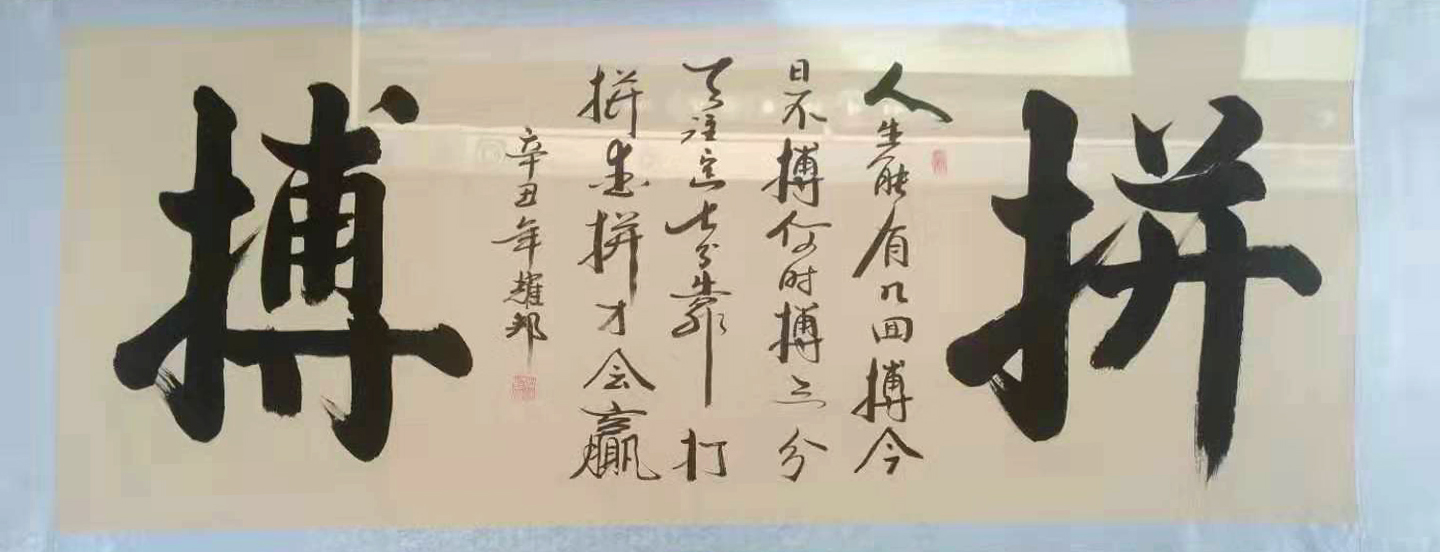 拼
人生能有几回搏今
日不搏何时搏三分
天注定七分靠打
拼爱拼才会赢
辛丑年耀邦
搏